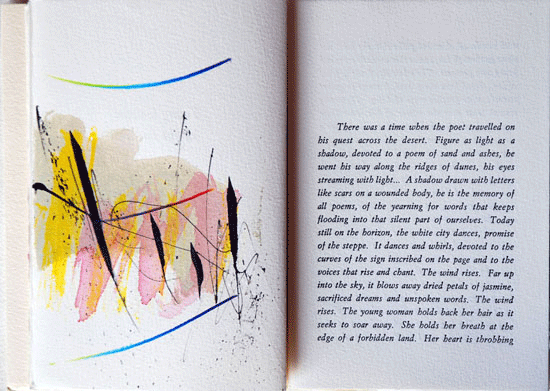 There was a time when the poet travelled on
his quest across the desert. Figure as light as a
shadow, devoted to a poem of sand and ashes, he
went his way along the ridges of dunes, his eyes
streaming with light... A shadow drawn with letters
like scars on a wounded body, he is the memory of
all poems, of the yearning for words that keeps
flooding into that silent part of ourselves. Today
still on the horizon, the white city dances, promise
of the steppe. It dances and whirls, devoted to the
curves of the sign inscribed on the page and to the
voices that rise and chant. The wind rises. Far up
into the sky, it blows away dried petals of jasmine,
sacrificed dreams and unspoken words. The wind
rises. The young woman holds back her hair as it
seeks to soar away. She holds her breath at the
edge of a forbidden land. Her heart is throbbing